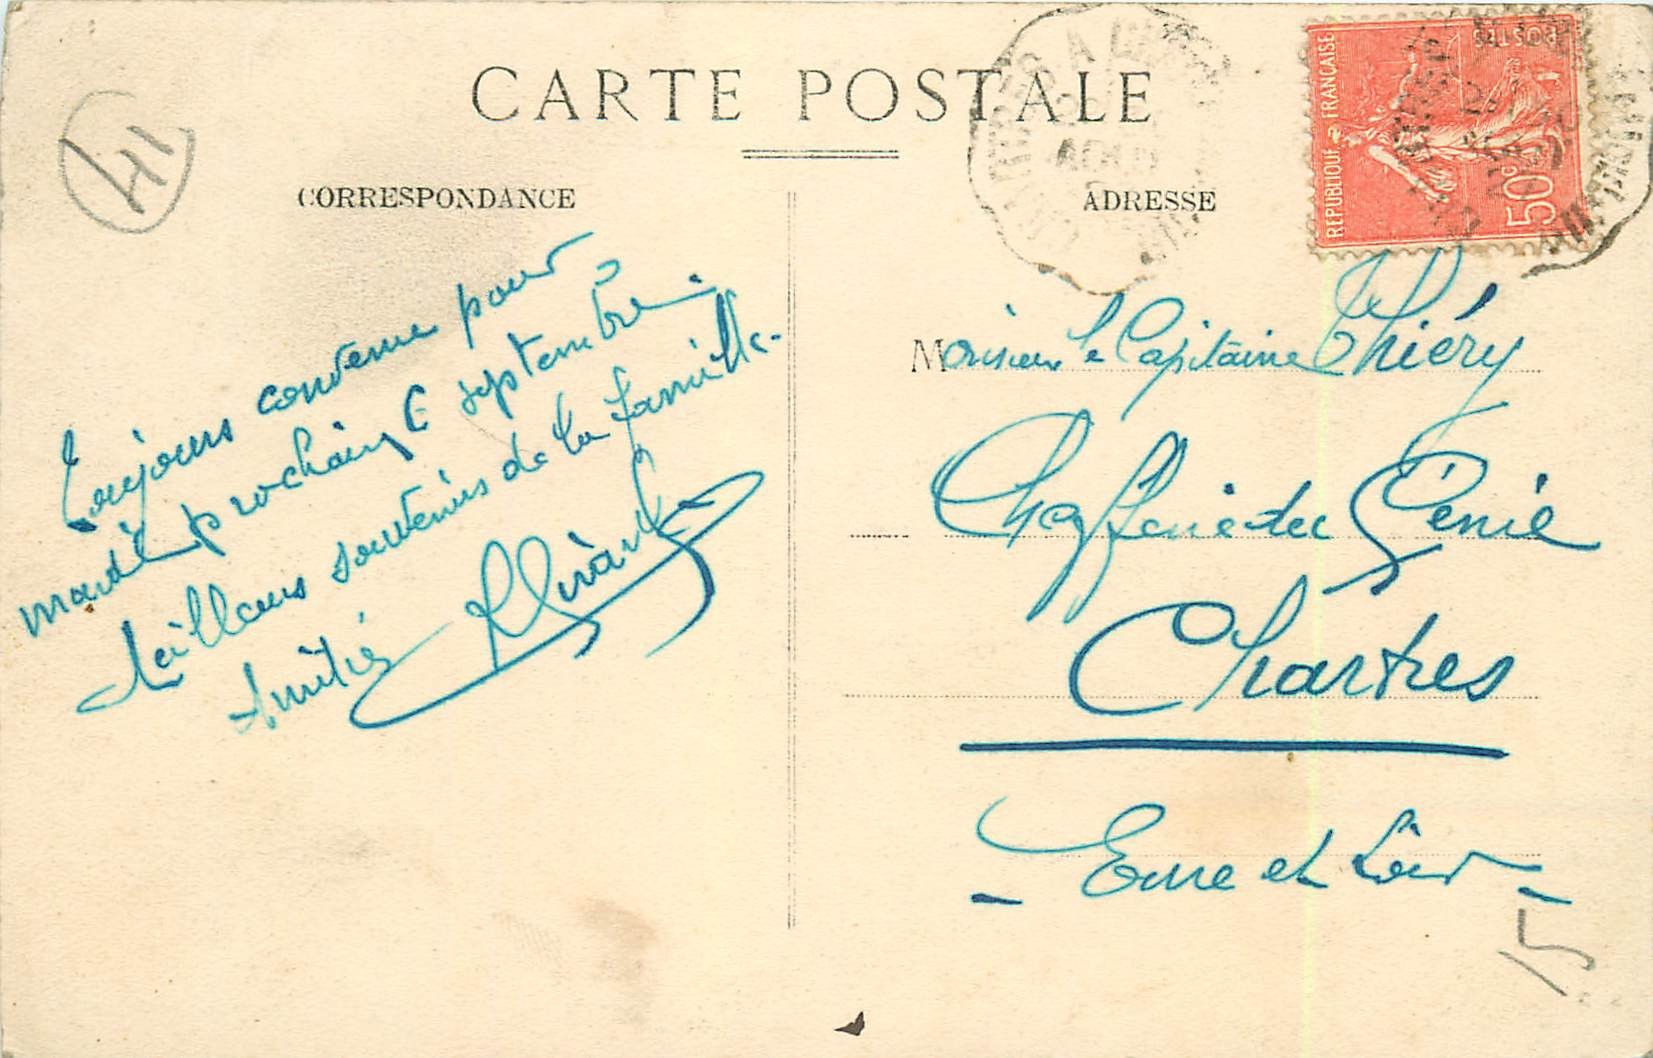 41
CARTE POSTALE
CORRESPONDANCE
Toujours convenu pour
mardi prochain 6 septembre.
Meilleurs souvenirs de la famille.
Amitiés
ADRESSE
REPUBLIQUE FRANÇAISE
POSTES
50c
AOUT
Monsieur le Capitaine Thiéry
Chefferie du Génie
Chartres
- Eure et Loir -
15